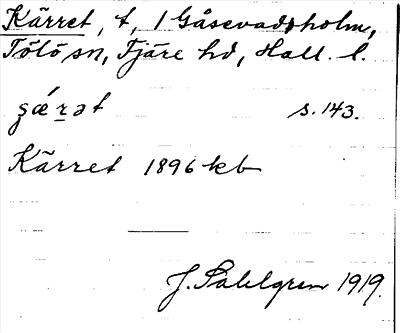 Kärret, t, / Gåsevadsholm,
Tölö sn, Fjäre hd, Hall. l.
gǽrət s. 143.
Kärret 1896 kb
J. Sahlgren 1919.